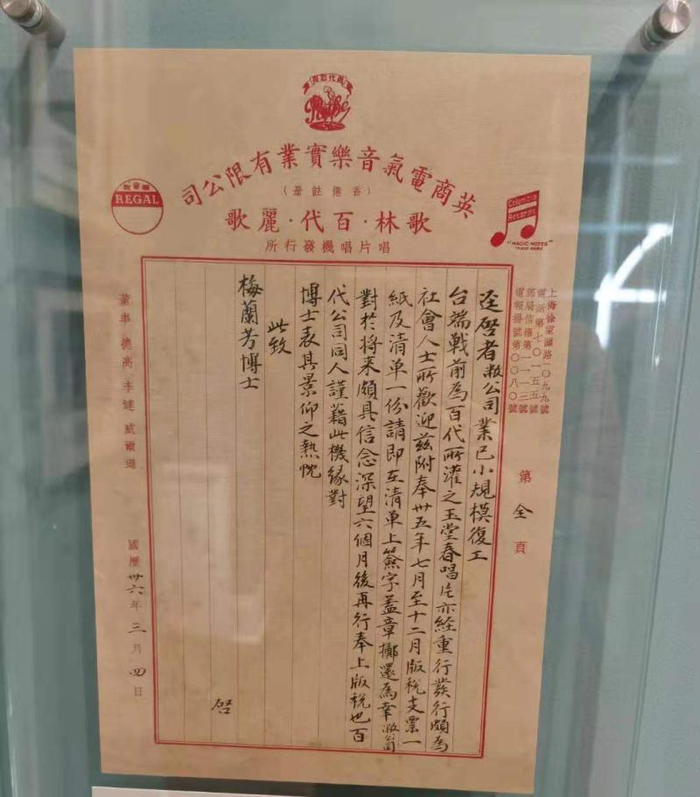 百代公司
Pathé
英商電氣音樂實業有限公司
(香港註冊)
歌林·百代·麗歌
唱片唱機發行所
REGAL
Columbia
Records
"MAGIC NOTES"
TRADE MARK
上海徐家匯路一〇九九號
電報掛號第〇〇八〇號
第 全 頁
逕啓者敝公司業已小規模復工
台端戰前為百代所灌之玉堂春唱片亦經重行發行頗為
社會人士所歡迎茲附奉卅五年七月至十二月版稅支票一
紙及清單一份請即在清單上簽字蓋章擲還為幸敝公司
對於將來頗具信念深望六個月後再行奉上版稅也百
代公司同人謹藉此機緣對
博士表其景仰之熱忱
此致
梅蘭芳博士
啓
國曆卅六年三月四日
董事 德高 李健 威爾遜